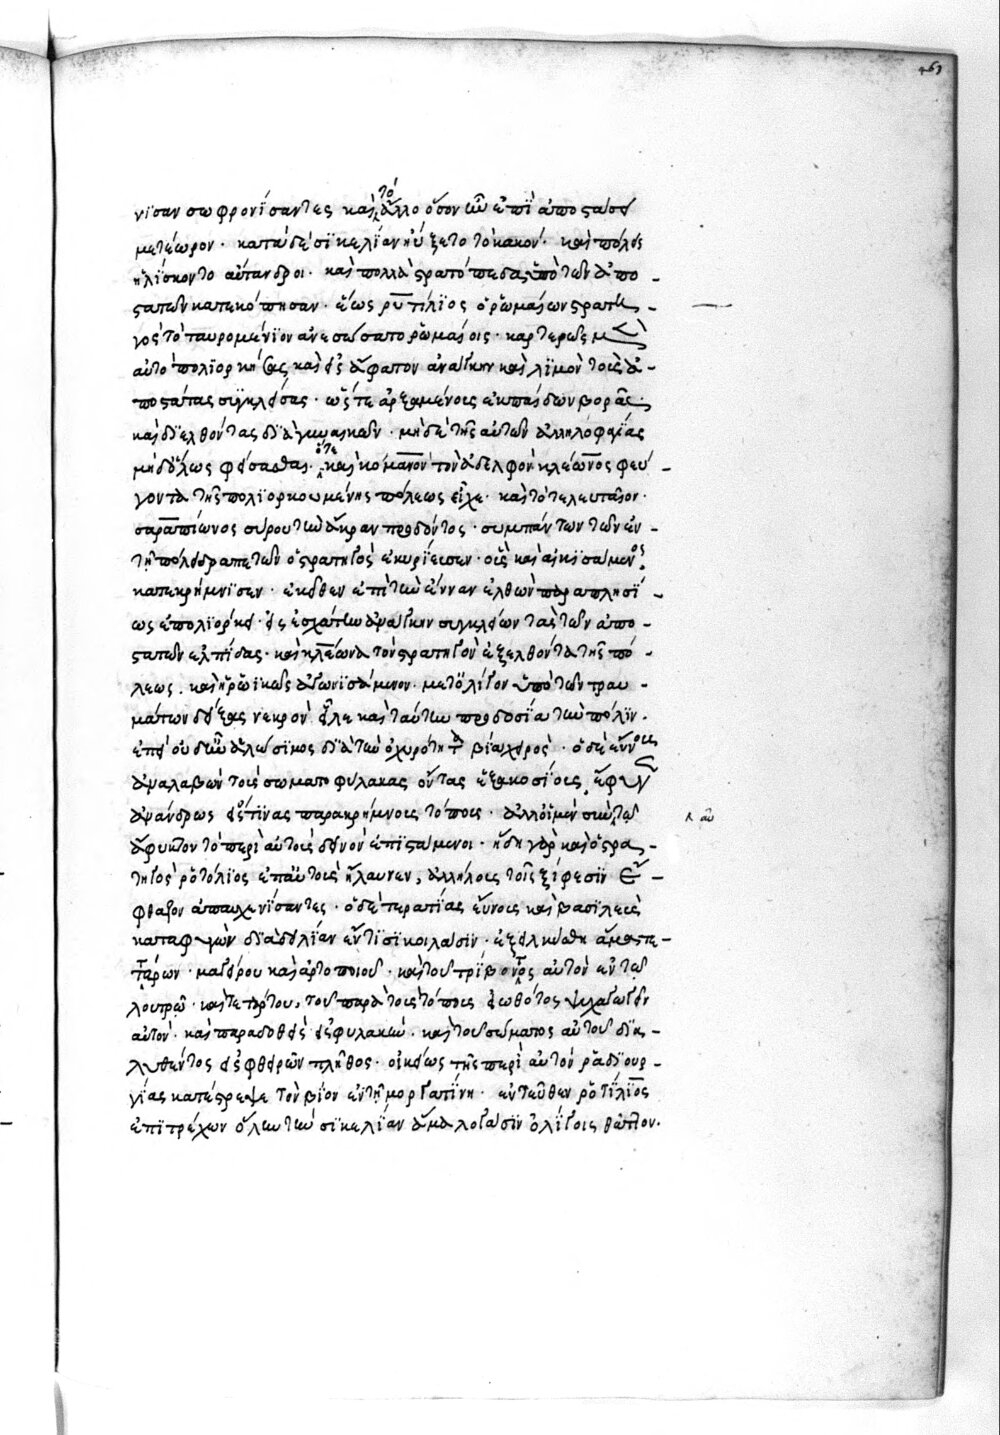 469
νϊσαν σωφρονίσαντες καὶ τὸ ἄλλο ὅσον ἦν ἐπὶ ἀποστάσει
μετέωρον· κατὰ δὲ σϊκελΐαν ηὔξετο τὸ κακόν· καὶ πόλεις
ἡλίσκοντο αὔτανδροι· καὶ πολλὰ στρατόπεδα ὑπὸ τῶν ἀπο-
στατῶν κατεκόπησαν· ἕως ῥυπίλϊος ὁ ῥωμαίων στρατη-
γὸς τὸ ταυρομένϊον ἀνεσώσατο ῥωμαίοις· καρτερῶς μὲν
αὐτὸ πολϊορκήσας καὶ εἰς ἄφατον ἀνάγκην καὶ λϊμὸν τοὺς ἀ-
ποστάτας συγκλείσας· ὥστε ἀρξαμένους ἐκ παίδων βορᾶς·
καὶ διελθόντας δϊὰ γυναικῶν· μηδὲ τῆς αὐτῶν ἀλληλοφαγίας
μηδ' ὅλως φείσασθαι· ὅτε καὶ κομανὸν τὸν ἀδελφὸν κλέωνος φεύ-
γοντα τῆς πολϊορκουμένης πόλεως εἷλε· καὶ τὸ τελευταῖον·
σαραπίωνος σύρου τὴν ἄκραν προδόντος· συμπάντων τῶν ἐν
τῇ πόλει δραπετῶν ὁ στρατηγὸς ἐκυρίευσεν· οὓς καὶ αἰκισάμενος
κατεκρήμνϊσεν· ἐκεῖθεν ἐπὶ τὴν ἔνναν ἐλθὼν παραπλησί-
ως ἐπολϊόρκει· εἰς ἐσχάτην ἀνάγκην συγκλείων τὰς τῶν ἀπο-
στατῶν ἐλπίδας· καὶ κλέωνα τὸν στρατηγὸν ἐξελθόντα τῆς πό-
λεως· καὶ ἡρωϊκῶς ἀγωνϊσάμενον· μετ' ὀλίγον ὑπὸ τῶν τραυ-
μάτων δείξας νεκρὸν εἷλε καὶ ταύτην προδοσία τὴν πόλϊν·
ἐπεὶ οὐδ' ἦν ἁλώσϊμος δϊὰ τὴν ὀχυρότητα βία χειρός· ὁ δὲ εὔνους
ἀναλαβὼν τοὺς σωματοφύλακας ὄντας ἑξακοσίους ἔφυγεν
ἀνάνδρως εἴς τϊνας παρακρήμνους τόπους· ἀλλ' οἱ μὲν σὺν αὐτῷ
ἄφυκτον τὸ περὶ αὑτοὺς δεινὸν ἐπϊστάμενοι· ἤδη γὰρ καὶ ὁ στρα-
τηγὸς ῥοτόλϊος ἐπ' αὐτοὺς ἤλαυνεν, ἀλλήλους τοῖς ξίφεσϊν ἔ-
φθαξον ἀπαυχενίσαντες· ὁ δὲ τερατίας εὔνους καὶ βασϊλεὺς
καταφυγὼν δϊὰ δειλίαν ἔν τϊσϊ κοιλάσϊν· ἐξειλκύσθη ἅμα τε-
ττάρων· μαγείρου καὶ ἀρτοποιοῦ· καὶ τοῦ τρίβοντος αὐτὸν ἐν τῷ
λουτρῷ· καὶ τετάρτου, τοῦ παρὰ τοὺς πότους εἰωθότος ψυχαγωγεῖν
αὐτὸν· καὶ παραδοθεὶς εἰς φυλακὴν· καὶ τοῦ σώματος αὐτοῦ δϊα-
λυθέντος εἰς φθειρῶν πλῆθος· οἰκείως τῆς περὶ αὐτὸν ῥαδϊουρ-
γίας κατέστρεψε τὸν βίον ἐν τῇ μοργαντίνῃ· ἐντεῦθεν ῥοτίλϊος
ἐπϊτρέχων ὅλην τὴν σϊκελϊαν ἅμα λογάσϊν ὀλίγοις θᾶττον·